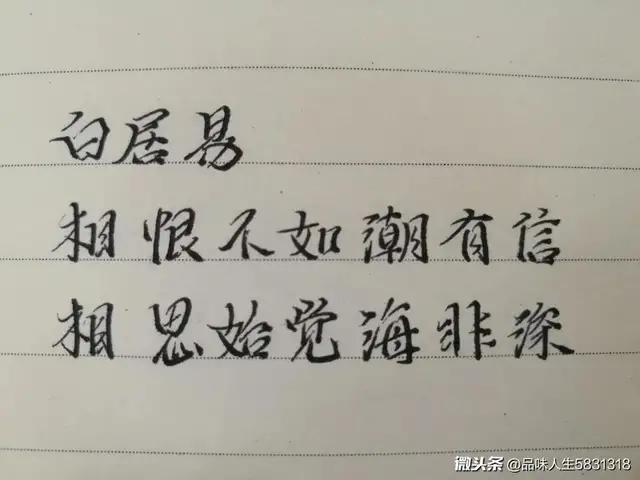 白居易
相恨不如潮有信
相思始觉海非深
微头条 @品味人生5831318